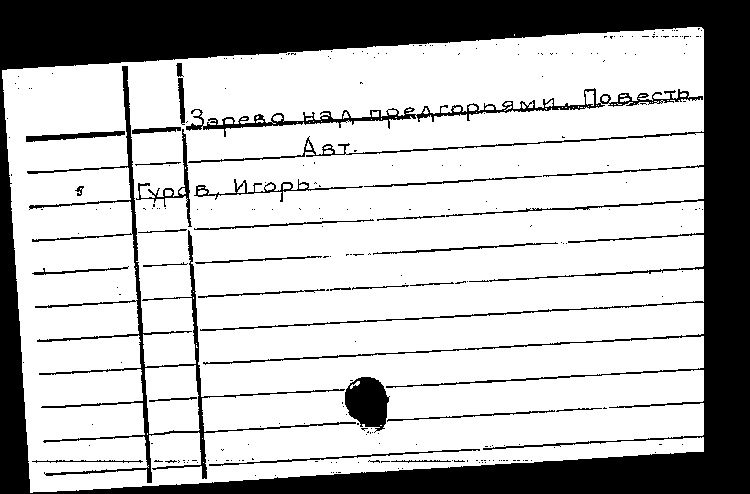 Зарево над предгорьями. Повесть
Авт.
Гуров, Игорь.